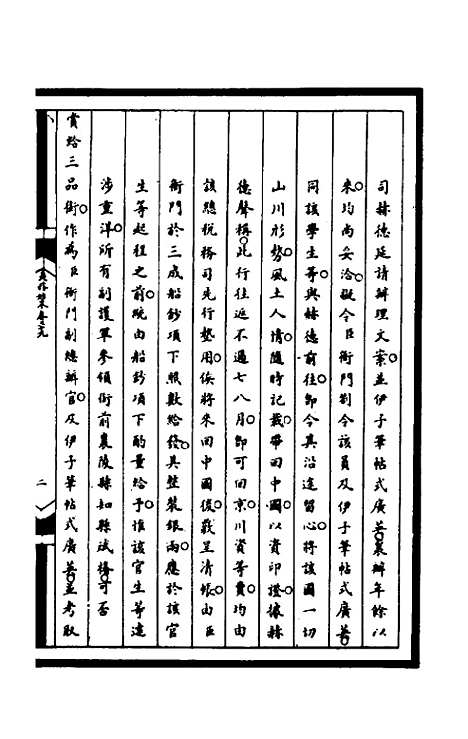 司赫德延請辦理文案並伊子筆帖式廣英襄辦年餘以
來均尚妥洽擬令臣衙門劄令該員及伊子筆帖式廣英
同該學生等與赫德前往即令其沿途留心將該國一切
山川形勢風土人情隨時記載帶回中國以資印證據赫
德聲稱此行往返不過七八月即可回京川資等費均由
該總稅務司先行墊用俟將來回中國後載呈清帳由臣
衙門於三成船鈔項下照數給發其整裝銀兩應於該官
生等起程之前晥由船鈔項下酌量給予惟該官生等遠
涉重洋所有副護軍參領銜前襄陵縣知縣斌椿可否
賞給三品銜作為臣衙門副總辦官及伊子筆帖式廣英並考取
二